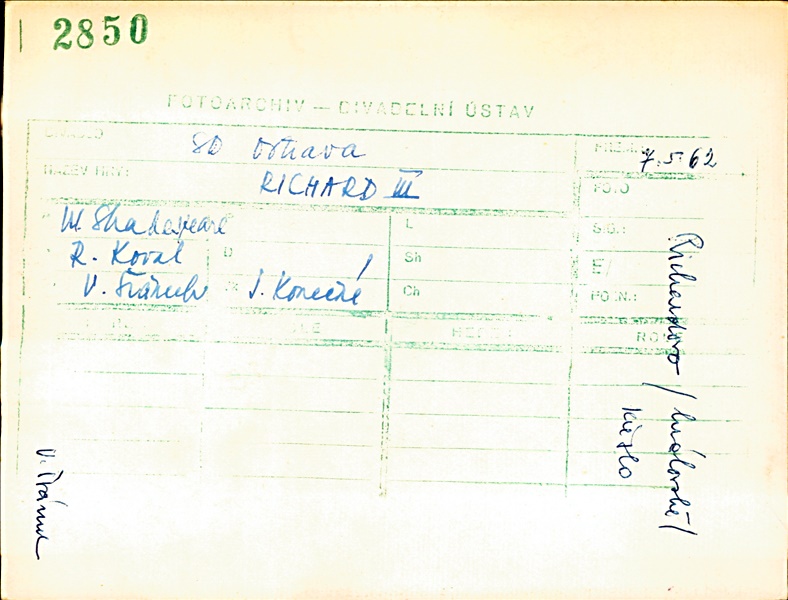 2850
FOTOARCHIV — DIVADELNÍ ÚSTAV
DIVADLO SD Ostrava
7.5.62
NÁZEV HRY: RICHARD III
FOTO
W. Shakespeare
L
R. Koval
D
Sh
E/
V. Šrámek
J. Konečná
Ch
POZN.:
Richardovo / královské /
křeslo
V. Šrámek